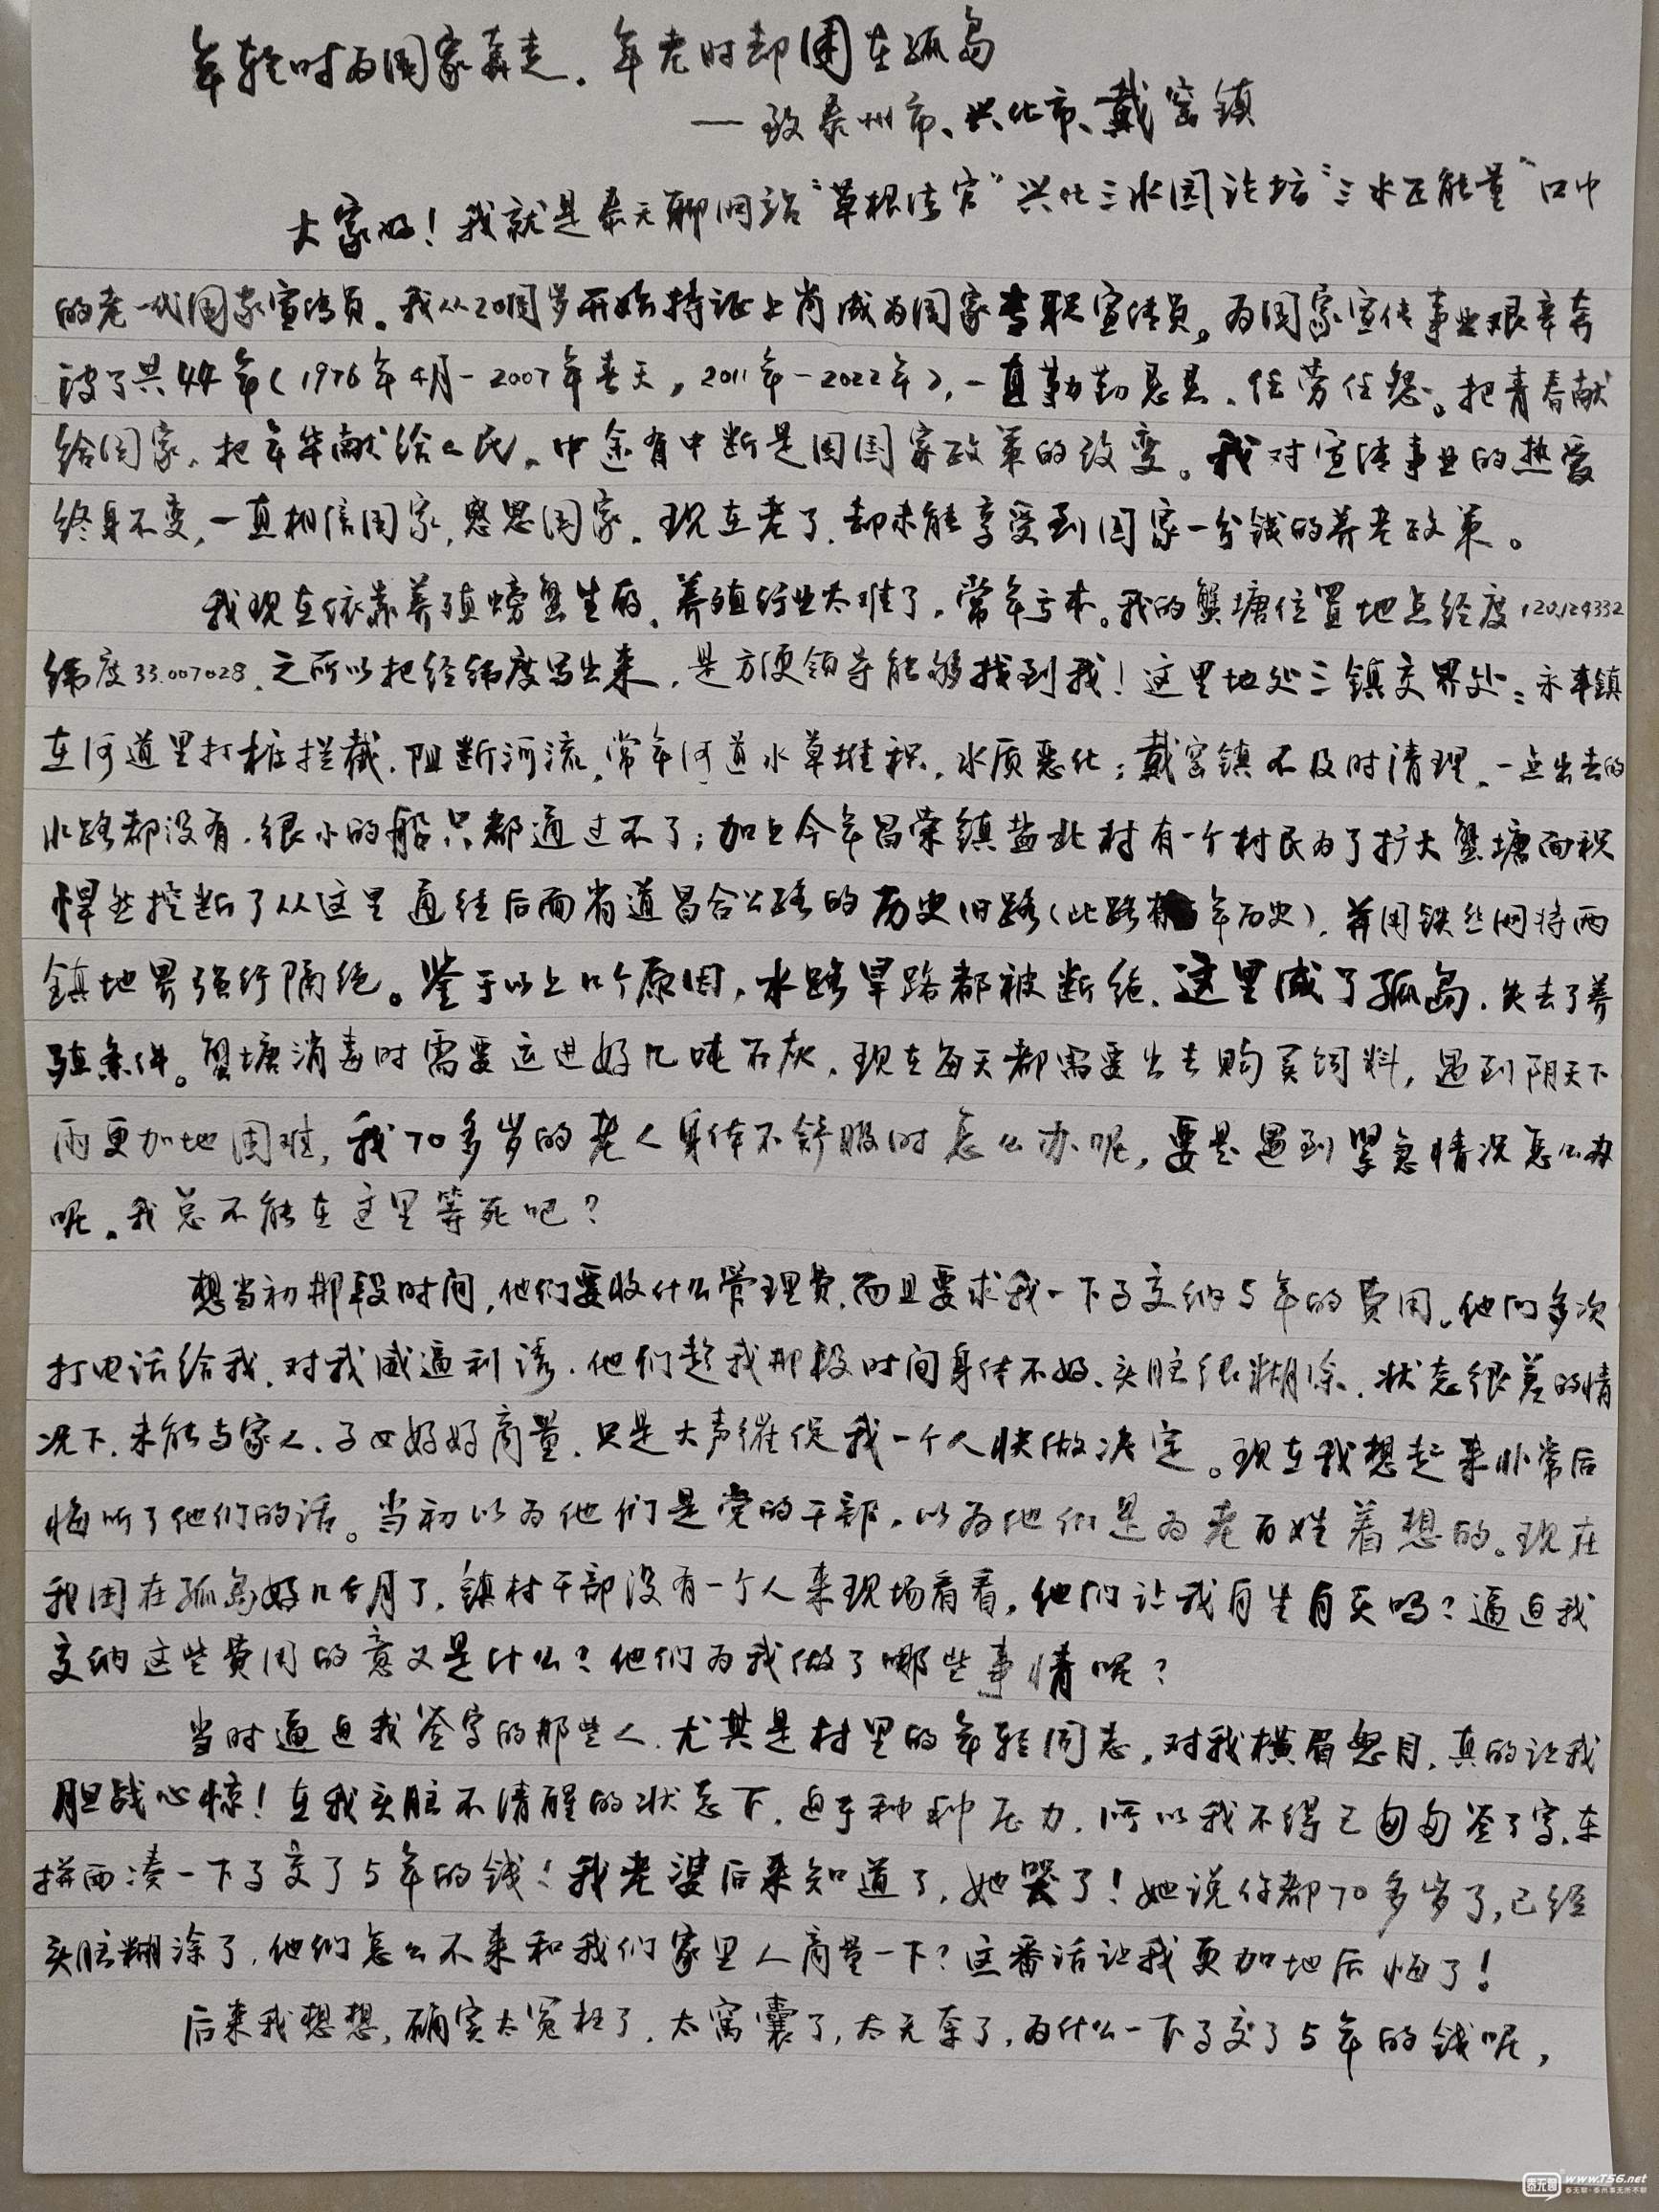 年轻时为国家奔走，年老时却困在孤岛
— 致泰州市、兴化市、戴窑镇
大家好！我就是泰无聊网站“草根法官”兴化三水园论坛“三水正能量”口中
的老一代国家宣传员。我从20周岁开始持证上岗成为国家专职宣传员。为国家宣传事业艰辛奔
波了共44年（1976年4月－2007年春天，2011年－2022年），一直勤勤恳恳、任劳任怨。把青春献
给国家，把年华献给人民。中途有中断是因国家政策的改变。我对宣传事业的热爱
终身不变，一直相信国家，感恩国家。现在老了，却未能享受到国家一分钱的养老政策。
我现在依靠养殖螃蟹生存，养殖行业太难了，常年亏本。我的蟹塘位置地点经度120.129332
纬度33.007028，之所以把经纬度写出来，是方便领导能够找到我！这里地处三镇交界处：永丰镇
在河道里打桩拦截，阻断河流，常年河道水草堆积，水质恶化；戴窑镇不及时清理，一点出去的
水路都没有，很小的船只都通过不了；加上今年昌荣镇盐北村有一个村民为了扩大蟹塘面积
悍然挖断了从这里直经后面省道昌合公路的历史旧路（此路有年历史），并用铁丝网将两
镇地界强行隔绝。鉴于以上几个原因，水路旱路都被断绝，这里成了孤岛，失去了养
殖条件。蟹塘消毒时需要运进好几吨石灰，现在每天都需要出去购买饲料，遇到阴天下
雨更加地困难，我70多岁的老人身体不舒服时怎么办呢，要是遇到紧急情况怎么办
呢。我总不能在这里等死吧？
想当初那段时间，他们要收什么管理费，而且要求我一下子交纳5年的费用。他们多次
打电话给我，对我威逼利诱，他们趁我那段时间身体不好、头脑很糊涂，状态很差的情
况下，未能与家人、子女好好商量，只是大声催促我一个人快做决定。现在我想起来非常后
悔听了他们的话。当初以为他们是党的干部，以为他们是为老百姓着想的。现在
我困在孤岛好几个月了，镇村干部没有一个人来现场看看，他们让我自生自灭吗？逼迫我
交纳这些费用的意义是什么？他们为我做了哪些事情呢？
当时逼迫我签字的那些人，尤其是村里的年轻同志，对我横眉怒目，真的让我
胆战心惊！在我头脑不清醒的状态下，迫于种种压力，所以我不得已匆匆签了字，东
拼西凑一下子交了5年的钱！我老婆后来知道了，她哭了！她说你都70多岁了，已经
头脑糊涂了，他们怎么不来和我们家里人商量一下？这番话让我更加地后悔了！
后来我想想，确实太冤枉了，太窝囊了，太无奈了，为什么一下子交了5年的钱呢，
泰无聊 www.T56.net
泰无聊·泰州事无所不聊